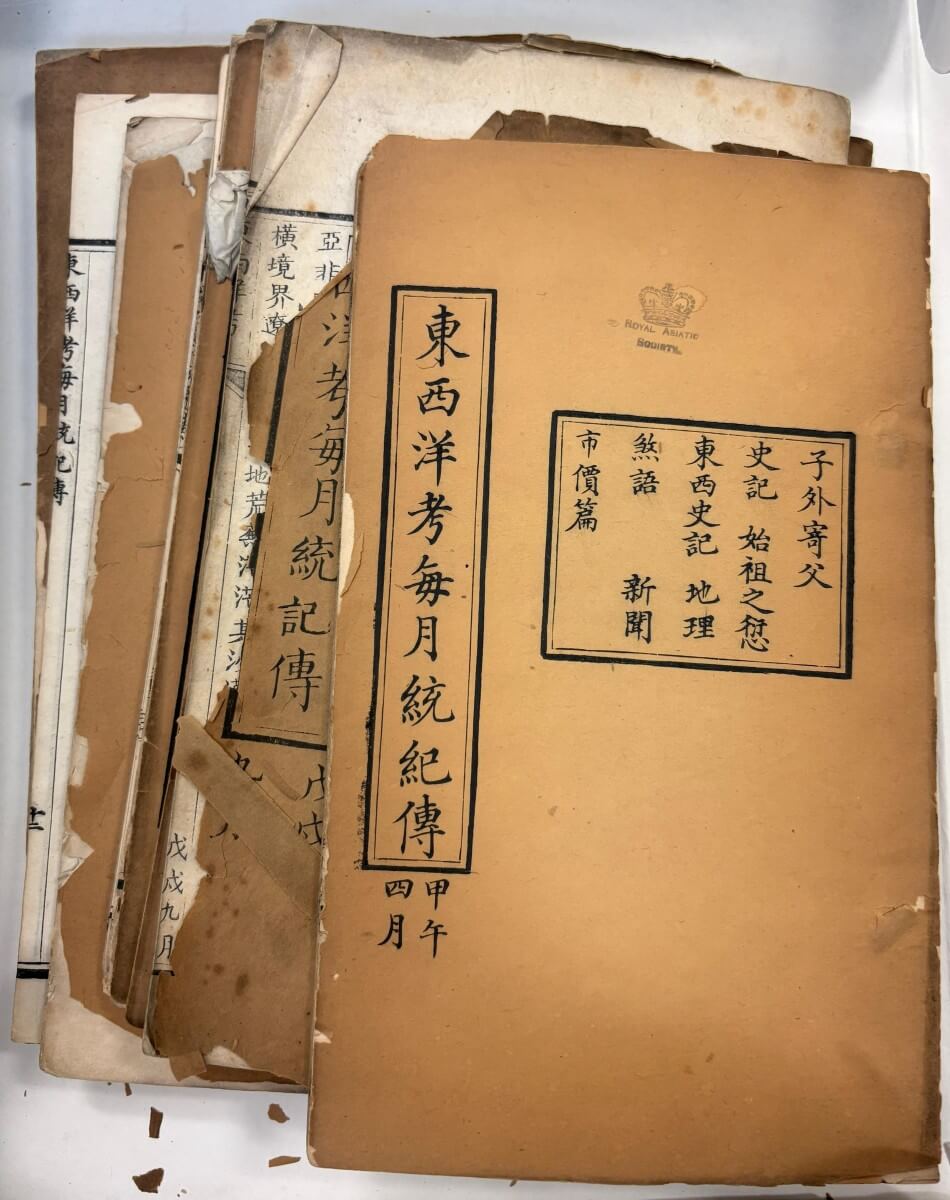 東西洋考每月統紀傳
甲午
四月
ROYAL ASIATIC
SOCIETY.
子外寄父
史記 始祖之愆
東西史記 地理
煞語 新聞
市價篇
洋考每月統記傳
戊戌
九
亞非
橫境界遼
地荒
戊戌九月
東西洋考每月統記傳